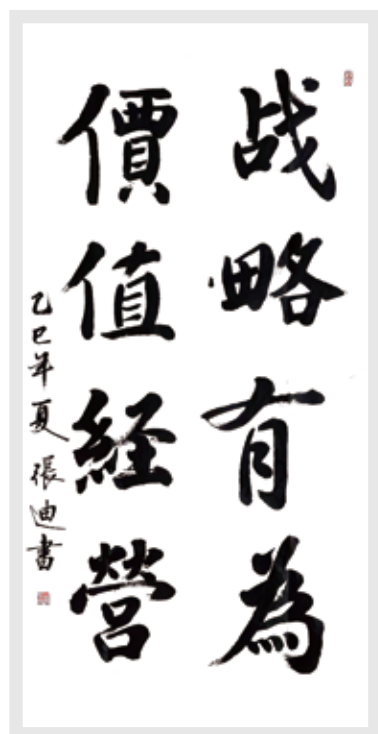 战略有為
價值経营
乙巳年夏 張迪書